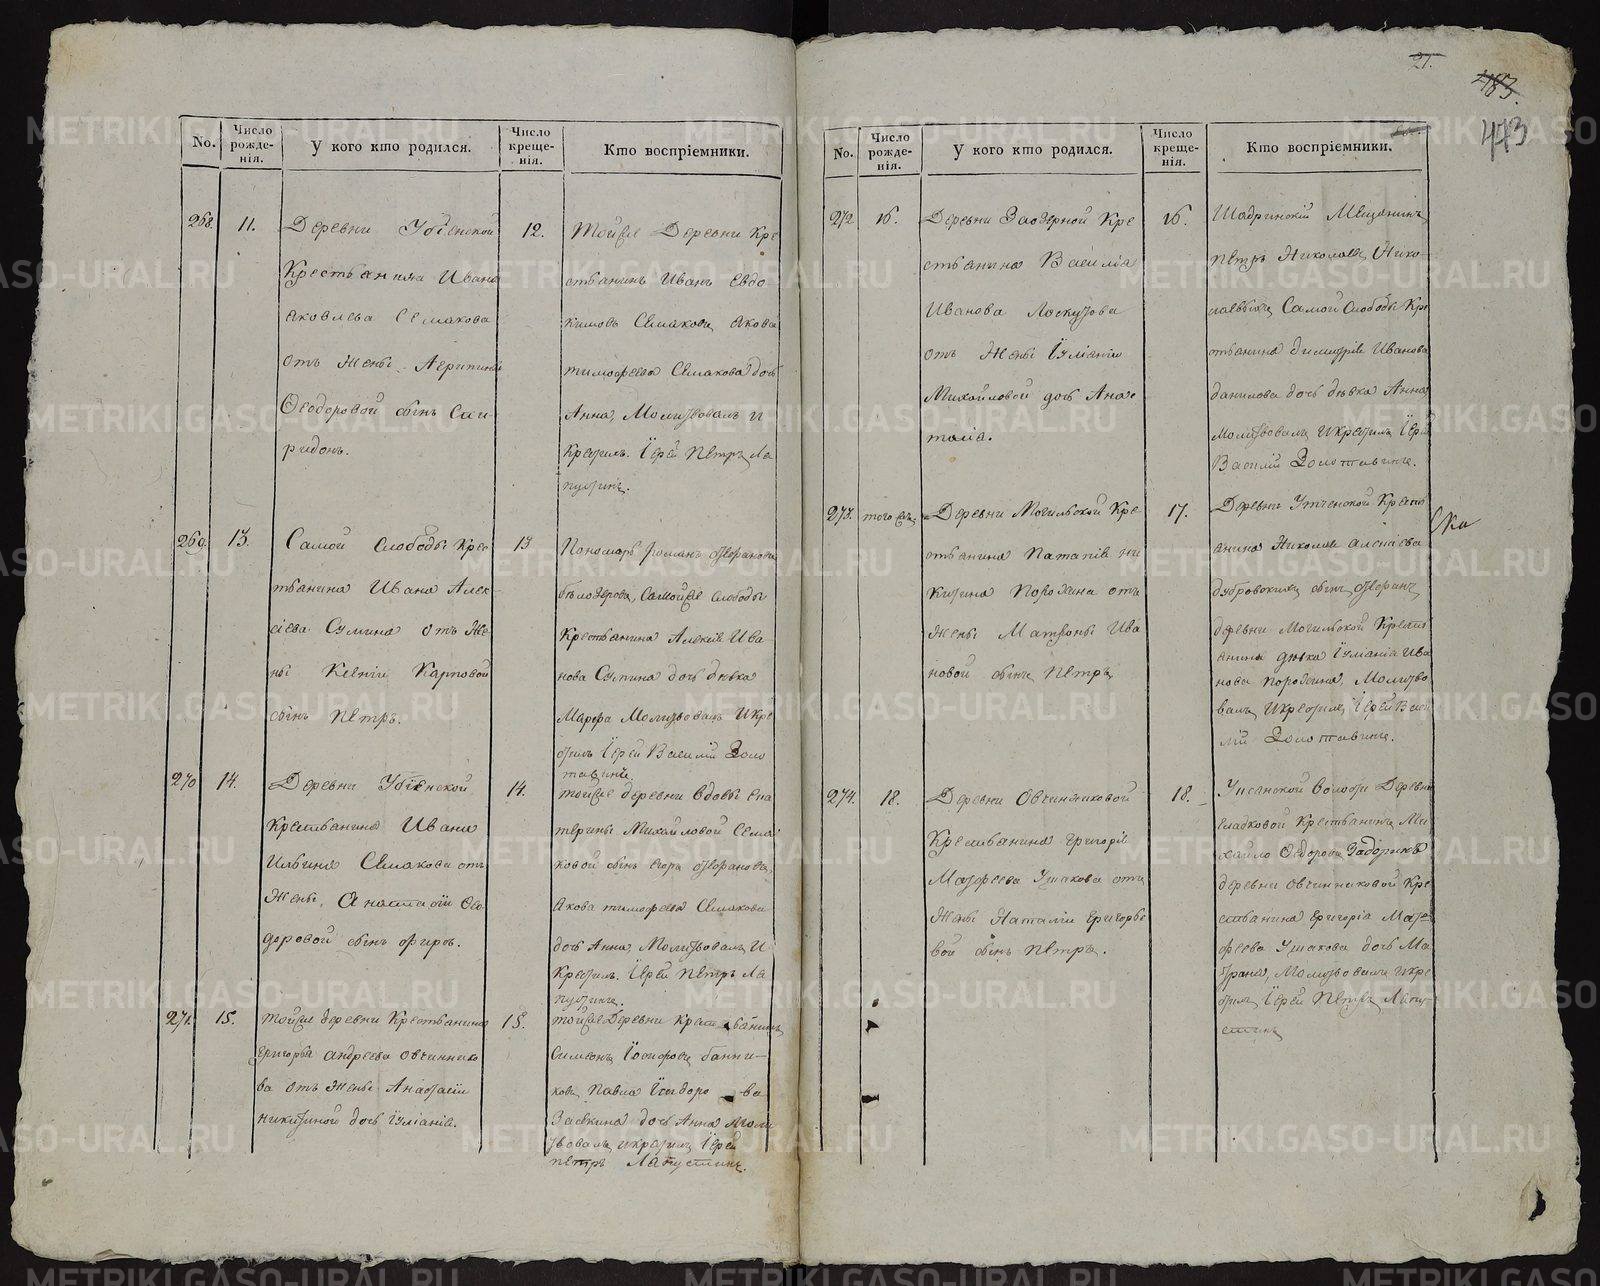 21.
483.
473
No.
Число рожде-нія.
У кого кто родился.
Число креще-нія.
Кто воспріемники.
268.
11.
Деревни Убіенской
Крестьянина Ивана
Яковлева Семакова
отъ жены Агрипины
Ѳеодоровой сынъ Спи-
ридонъ.
12.
Тойже Деревни Кре
стьянинъ Иванъ Евдо
кимовъ Семаковъ, Якова
тимофеева Семакова дочь
Анна, Молитвовалъ и
Крестилъ Іерей Петръ Ла
пустинъ.
269.
13.
Самой Слободы Крес
тьянина Ивана Алек-
сіева Сумина отъ Же
ны Ксеніи Карповой
сынъ Петръ.
13
Пономарь романъ
Самойже Слободы
Крестьянина Алексіе Ива-
нова Сумина дочь девка
Марфа Молитвовалъ И кре
стилъ Іерей Василій Золо
тавинъ.
270
14.
Деревни Убіенской
Крестьянина Ивана
Ильина Семакова отъ
Жены Анастасіи Ѳео-
доровой сынъ Фирсъ.
14.
тойже деревни вдовы Ека
терины Михайловой Сема
ковой сынъ Егоръ
Якова тимофеева Семакова
дочь Анна, Молитвовалъ И
Крестилъ Іерей Петръ Ла
пустинъ.
271.
15.
тойже деревни Крестьянина
Григорья андреева Овчиннико
ва отъ жены Анастасіи
никитиной дочь Іуліанія.
15.
тойже Деревни Крестьянинъ
Симеонъ банни-
ковъ, Павла Ісидоро ва
Заевкина дочь Анна Моли
твовалъ и крестилъ Іерей
Петръ Лапустинъ.
No.
Число рожде-нія.
У кого кто родился.
Число креще-нія.
Кто воспріемники.
272
16.
Деревни Заозерной Кре
стьянина Василья
Иванова Лоскутова
отъ Жены Іуліаніи
Михайловой дочь Ана-
толіа.
16.
Шадринскій Мещанинъ
Петръ Николаевъ Нико-
лаевыхъ Самой Слободы Кре
стьянина димитріе Иванова
данилова дочь девка Анна
Молитвовалъ и крестилъ Іерей
Василій Золотавинъ.
273.
того жъ
Деревни Могильской Кре
стьянина Патапіе ни
китина Порозина отъ
Жены Матроны Ива
новой сынъ Петръ
17.
Деревни Утченской Кресть
янина Николае алексіева
дубровскихъ сынъ
деревни Могильской Кресть
янина девка Іуліаніа Ива
нова порозина, Молитво
валъ и крестилъ Іерей Васи
лій Золотавинъ.
274.
18.
Деревни Овчинниковой
Крестьянина Григоріе
Матфеева Ушакова отъ
Жены Наталіи Григорье
вой сынъ Петръ.
18.
Уксянской Волости Деревни
гладковой Крестьянинъ Ми
хайло Ѳедоровъ Задоринъ
деревни Овчинниковой Кре
стьянина Григоріа Мат-
феева Ушакова дочь Ма
трона, Молитвовалъ и кре
стилъ Іерей Петръ Лапу-
стинъ
METRIKI.GASO-URAL.RU